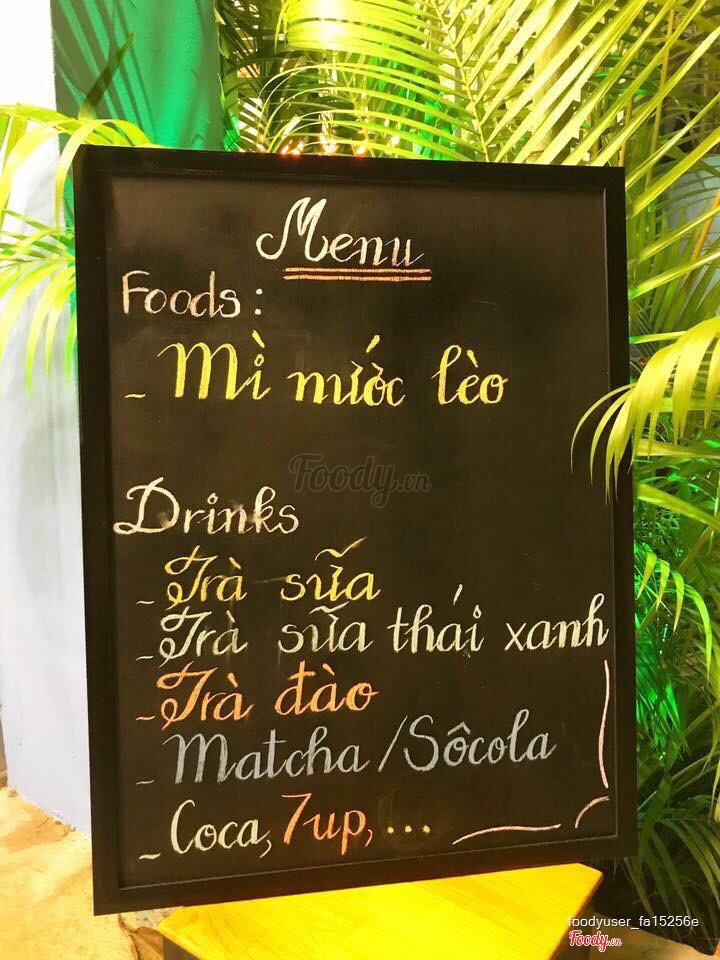 Menu
Foods:
- Mì nước lèo
Foody.vn
Drinks
- Trà sữa
- Trà sữa thái xanh
- Trà đào
- Matcha/Sôcola
- Coca, 7up, ...
foodyuser_fa15256e
Foody.vn